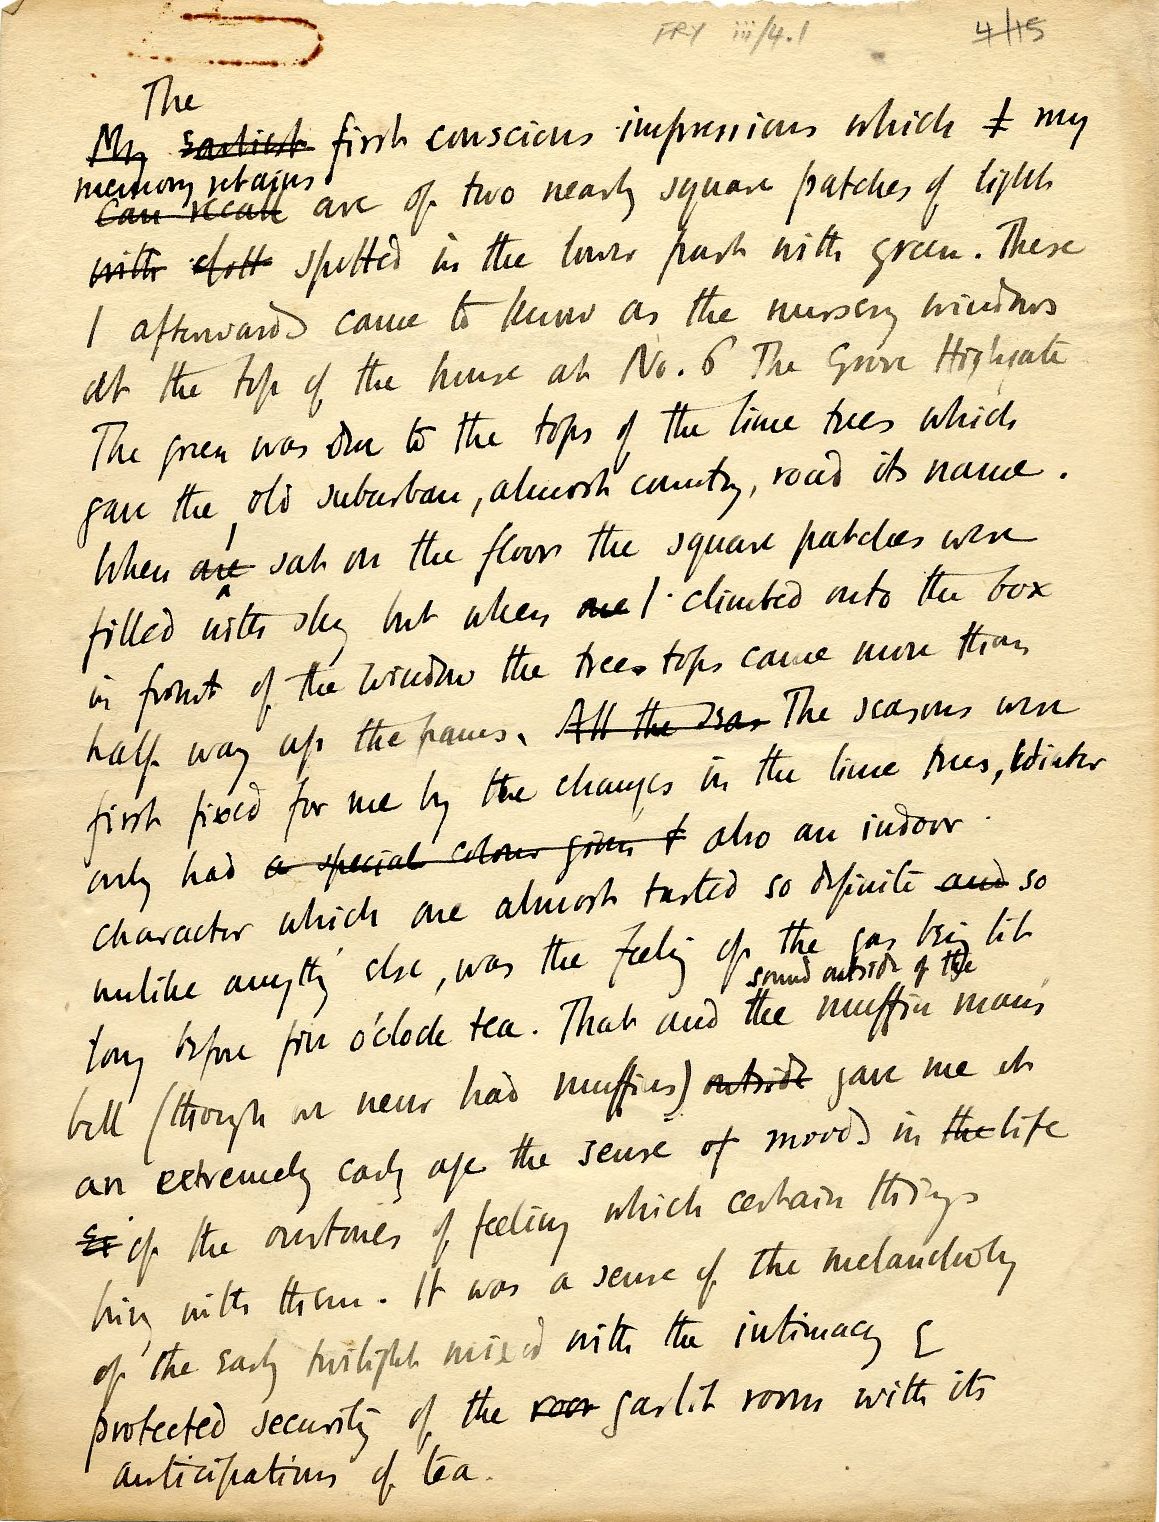 FRY iii/4.1 4/15
The
My earliest first conscious impressions which I my
memory retains
can recall are of two nearly square patches of light
with spott spotted in the lower part with green. These
I afterwards came to know as the nursery windows
at the top of the house at No. 6 The Grove Highgate
The green was due to the tops of the lime trees which
gave the, old suburban, almost country, road its name.
I
When one sat on the floor the square patches were
filled with sky but when one I climbed onto the box
in front of the window the trees tops came more than
half way up the panes. All the The seasons were
first fixed for me by the changes in the lime trees, Winter
only had a special colour given & also an indoor
character which one almost tasted so definite and so
unlike anythg else, was the feelig of the gas beig lit
sound outside of the
long before five o'clock tea. That and the muffin man's
bell (though we never had muffins) outside gave me at
an extremely early age the sense of moods in the life
of the overtones of feeling which certain things
bring with them. It was a sense of the melancholy
of the early twilight mixed with the intimacy &
protected security of the room gaslit room with its
anticipations of tea.